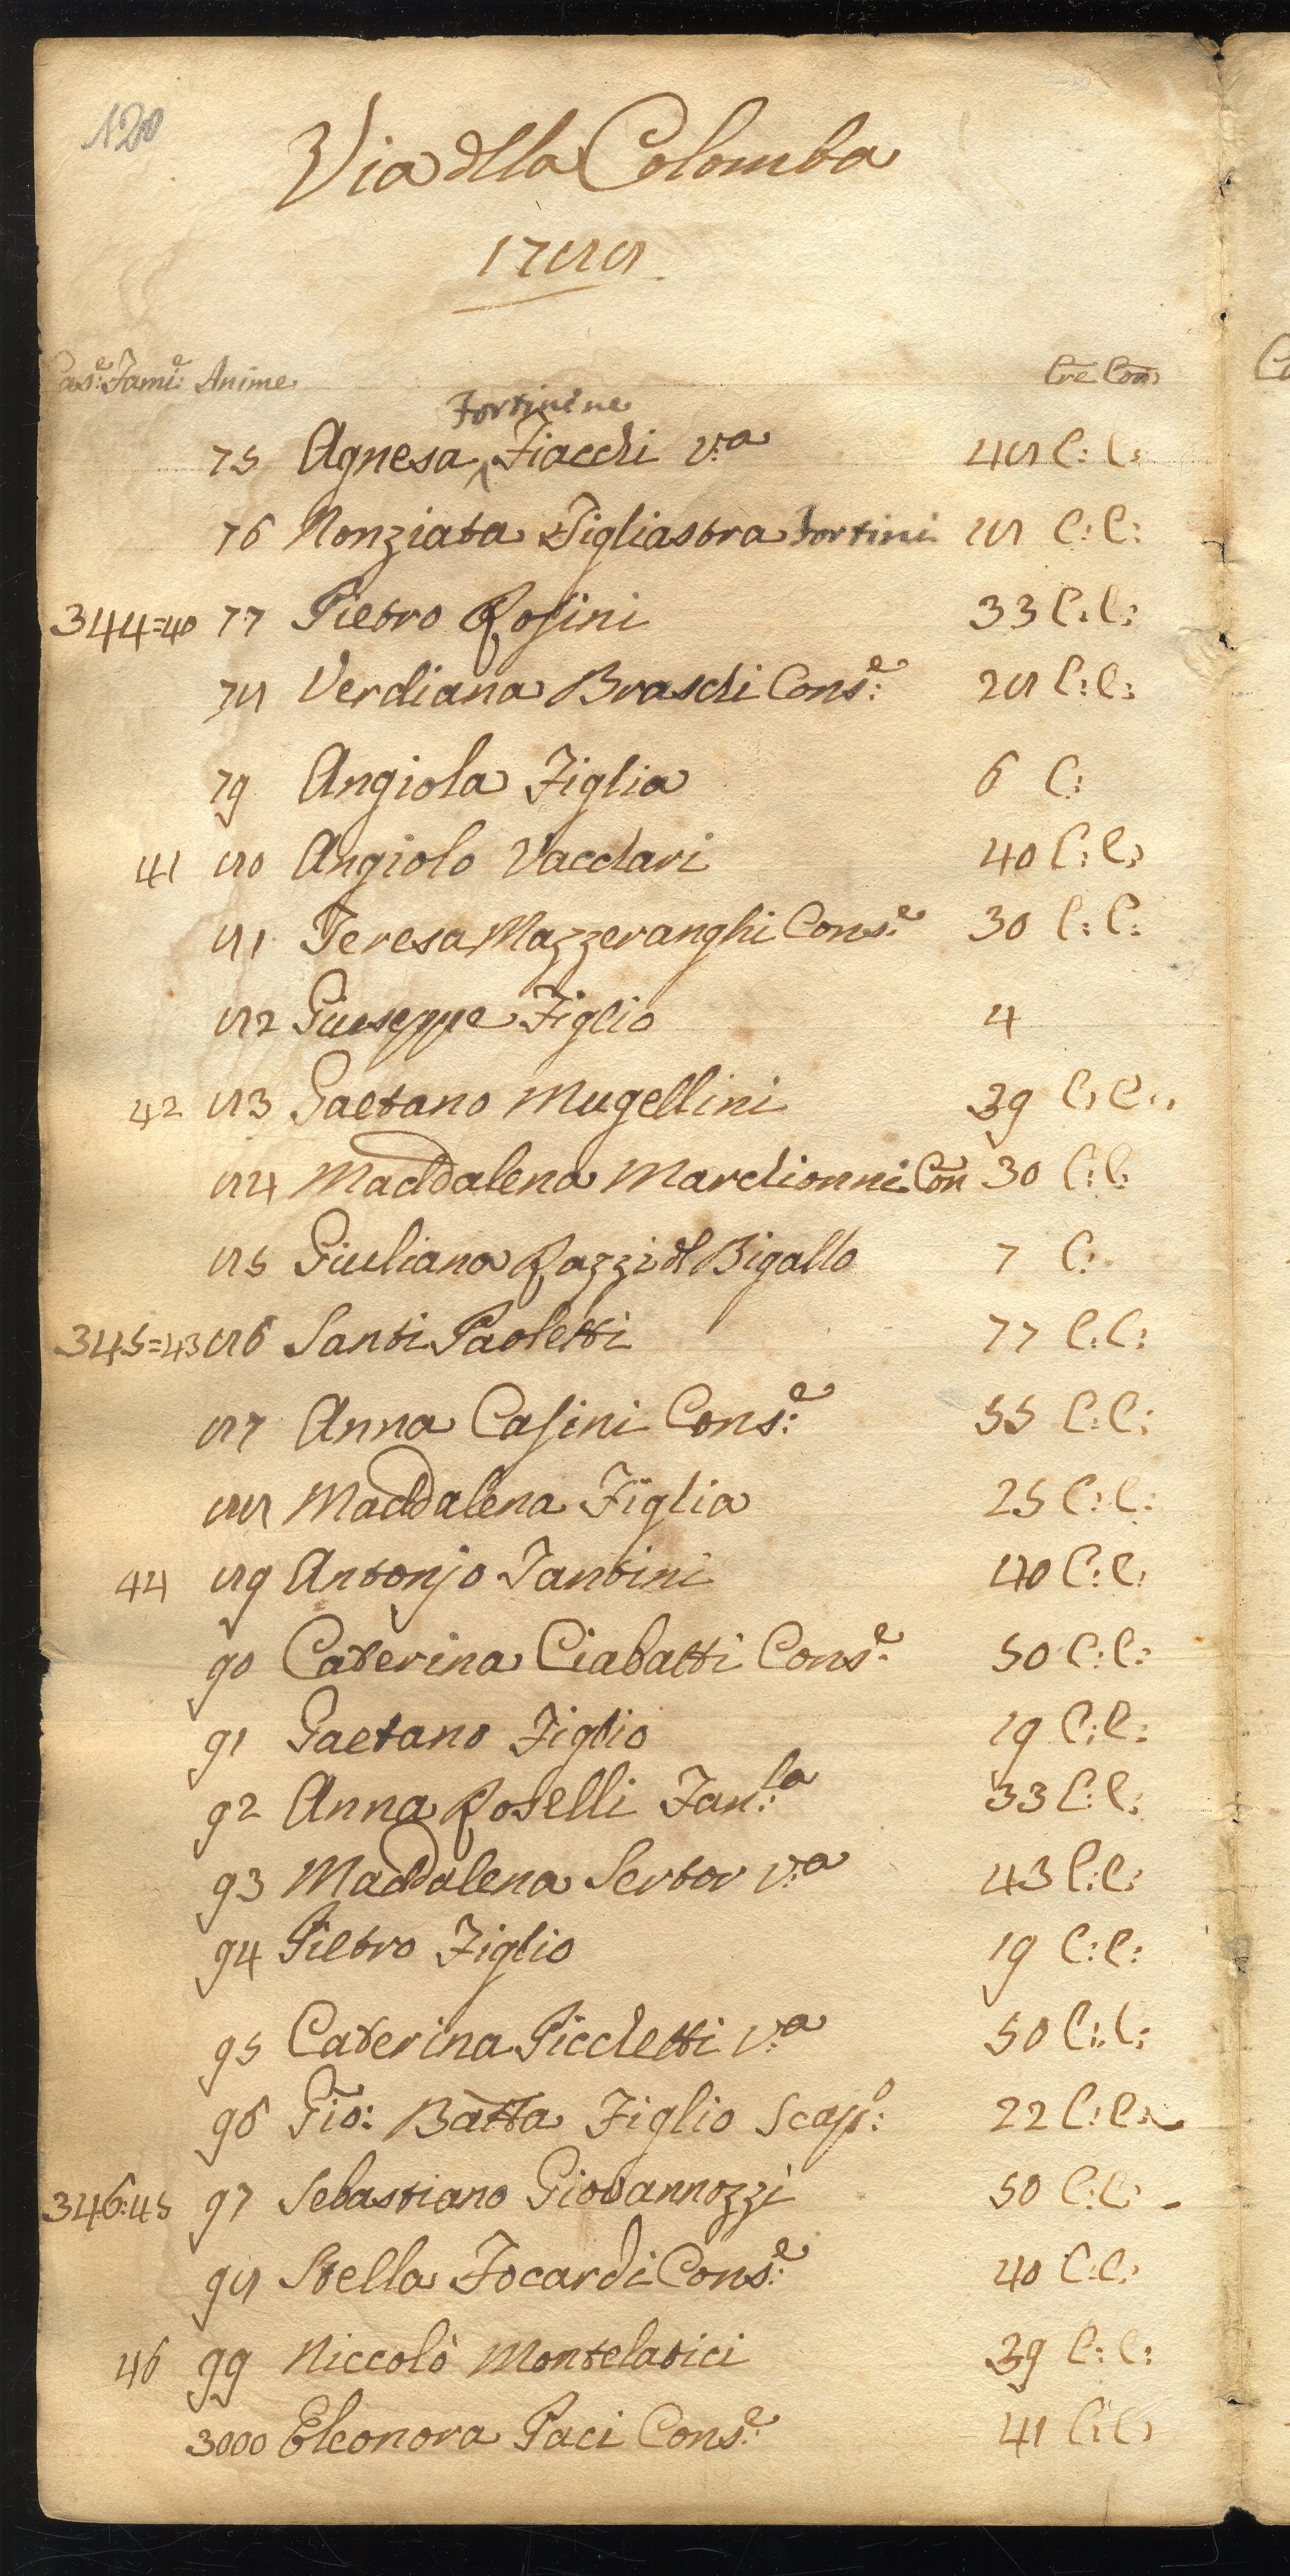 120
Via della Colomba
1788
Case: Fami: Anime Cre Com
Fortini ne
75 Agnesa Fiacchi v:a 48 C: C:
76 Nonziata Figliastra Fortini 18 C: C:
344=40 77 Pietro Rosini 33 C: C:
78 Verdiana Braschi Cons:e 28 C: C:
79 Angiola Figlia 6 C:
41 80 Angiolo Vacchari 40 C: C:
81 Teresa Mazzeranghi Cons:e 30 C: C:
82 Giuseppe Figlio 4
42 83 Gaetano Mugellini 39 C: C:
84 Maddalena Marchionni Con 30 C: C:
85 Giuliana Razzi dl Bigallo 7 C:
345=43 86 Santi Paoletti 77 C: C:
87 Anna Casini Cons:e 55 C: C:
88 Maddalena Figlia 25 C: C:
44 89 Antonjo Tantini 40 C: C:
90 Caterina Ciabatti Cons:e 50 C: C:
91 Gaetano Figlio 19 C: C:
92 Anna Roselli Fan:la 33 C: C:
93 Maddalena Sertor v:a 43 C: C:
94 Pietro Figlio 19 C: C:
95 Caterina Picchetti v:a 50 C: C:
96 Gio: Batta Figlio Scap:o 22 C: C:
346:45 97 Sebastiano Giovannozzi 50 C: C:
98 Stella Focardi Cons:e 40 C: C:
46 99 Niccolò Montelatici 39 C: C:
3000 Eleonora Paci Cons:e 41 C: C: